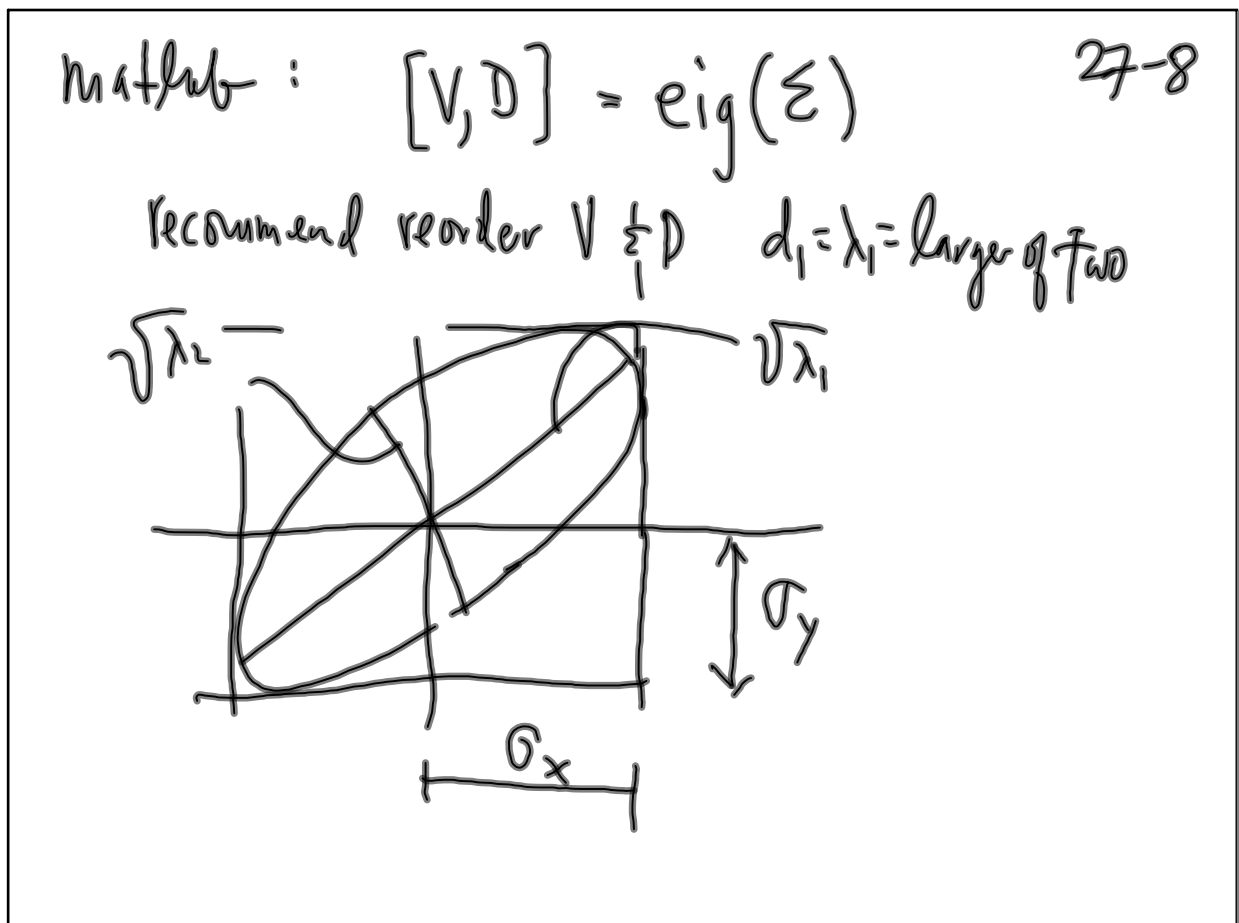 matlab : [V,D] = eig(Σ) 27-8
recommend reorder V & D d₁=λ₁= larger of two
√λ₂ √λ₁
σy
σx